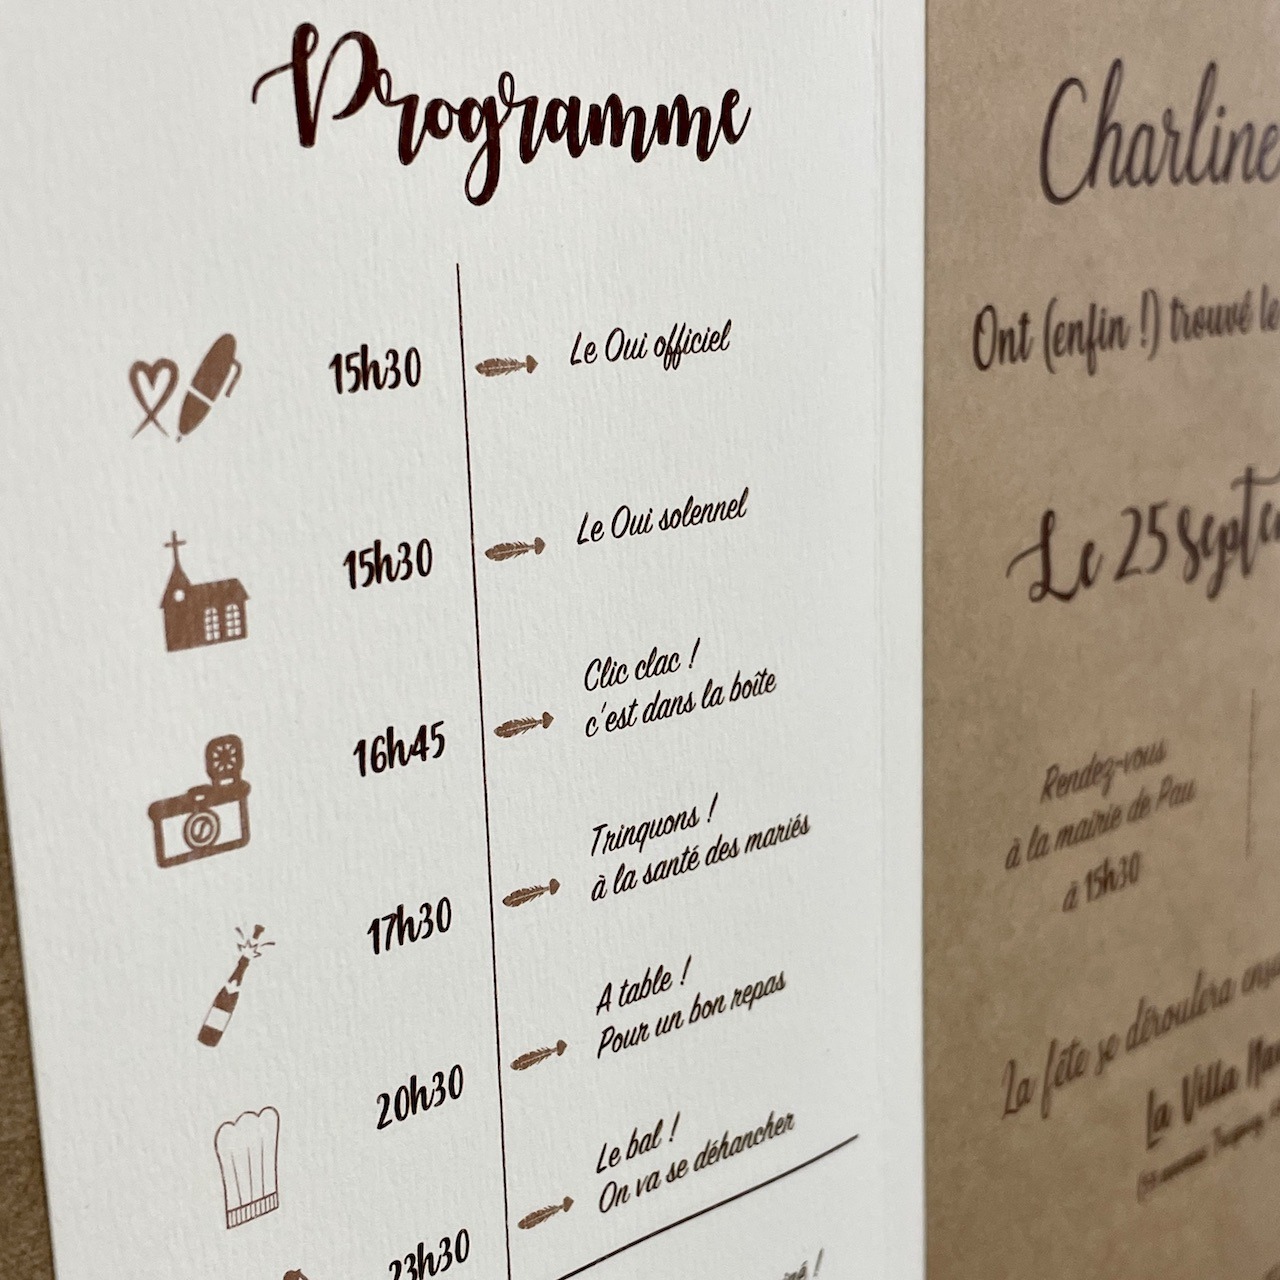 Programme
15h30
Le Oui officiel
15h30
Le Oui solennel
16h45
Clic clac !
c'est dans la boîte
17h30
Trinquons !
à la santé des mariés
20h30
A table !
Pour un bon repas
23h30
Le bal !
On va se déhancher
Charline
Ont (enfin !) trouvé le
Le 25
Rendez-vous
à la mairie de Pau
à 15h30
La fête se déroulera
La Villa